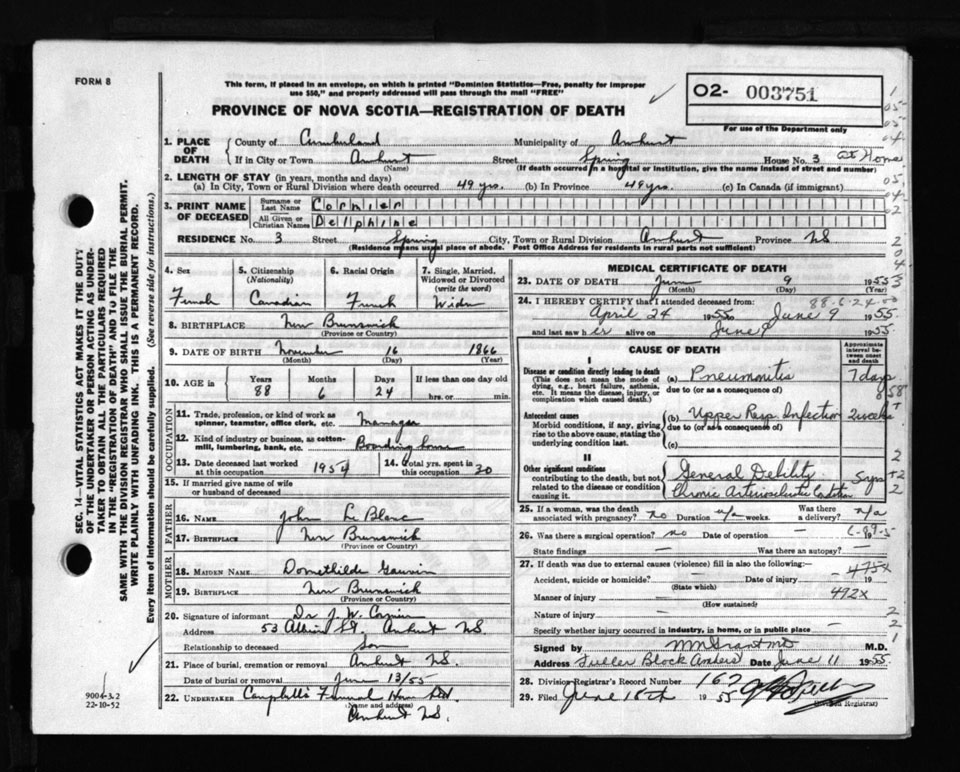 FORM 8
This form, if placed in an envelope, on which is printed "Dominion Statistics—Free, penalty for improper
use $50," and properly addressed will pass through the mail "FREE"
PROVINCE OF NOVA SCOTIA—REGISTRATION OF DEATH
O2- 003751
For use of the Department only
1. PLACE OF DEATH County of Cumberland Municipality of Amherst
If in City or Town Amherst (Name) Street Spring House No. 3 at Home
(If death occurred in a hospital or institution, give the name instead of street and number)
2. LENGTH OF STAY (in years, months and days)
(a) In City, Town or Rural Division where death occurred 49 yrs. (b) In Province 49 yrs. (c) In Canada (if immigrant)
3. PRINT NAME OF DECEASED Surname or Last Name Cormier
All Given or Christian Names Delphine
RESIDENCE No. 3 Street Spring City, Town or Rural Division Amherst Province NS
(Residence means usual place of abode. Post Office Address for residents in rural parts not sufficient)
4. Sex Female
5. Citizenship (Nationality) Canadian
6. Racial Origin French
7. Single, Married, Widowed or Divorced (write the word) Widow
8. BIRTHPLACE New Brunswick
(Province or Country)
9. DATE OF BIRTH November 16 1866
(Month) (Day) (Year)
10. AGE in Years 88 Months 6 Days 24 If less than one day old hrs. or min.
OCCUPATION
11. Trade, profession, or kind of work as spinner, teamster, office clerk, etc. Manager
12. Kind of industry or business, as cotton-mill, lumbering, bank, etc. Boarding house
13. Date deceased last worked at this occupation 1954 14. Total yrs. spent in this occupation 30
15. If married give name of wife or husband of deceased
FATHER
16. NAME John LeBlanc
17. BIRTHPLACE New Brunswick
(Province or Country)
MOTHER
18. MAIDEN NAME Domethilde Gauvin
19. BIRTHPLACE New Brunswick
(Province or Country)
20. Signature of informant Dr J. W. Cormier
Address 53 Albion St. Amherst NS.
Relationship to deceased Son
21. Place of burial, cremation or removal Amherst NS.
Date of burial or removal June 13/55
22. UNDERTAKER Campbells Funeral Home Ltd
(Name and address)
Amherst NS.
MEDICAL CERTIFICATE OF DEATH
23. DATE OF DEATH June 9 1955
(Month) (Day) (Year)
88-6-24
24. I HEREBY CERTIFY that I attended deceased from:
April 24 1955 June 9 1955
and last saw her alive on June 9 1955
CAUSE OF DEATH
Approximate interval between onset and death
I
Disease or condition directly leading to death (a) Pneumonitis 7 days
(This does not mean the mode of dying, e.g., heart failure, asthenia, etc. It means the disease, injury, or complication which caused death.)
due to (or as a consequence of)
Antecedent causes (b) Upper Resp. Infection 2 weeks
Morbid conditions, if any, giving rise to the above cause, stating the underlying condition last.
due to (or as a consequence of)
(c)
II
Other significant conditions
contributing to the death, but not related to the disease or condition causing it.
General Debility 5 yrs
Chronic Arteriosclerotic Condition
25. If a woman, was the death associated with pregnancy? no Duration n/a weeks Was there a delivery? n/a
26. Was there a surgical operation? no Date of operation — 19
State findings — Was there an autopsy? —
27. If death was due to external causes (violence) fill in also the following:—
475x
Accident, suicide or homicide? (State which) Date of injury 19
Manner of injury 492x
(How sustained)
Nature of injury —
Specify whether injury occurred in industry, in home, or in public place —
Signed by M.D.
Address Fuller Block Amherst Date June 11 1955
28. Division Registrar's Record Number 167
29. Filed June 18th 1955
(Division Registrar)
SEC. 14—VITAL STATISTICS ACT MAKES IT THE DUTY
OF THE UNDERTAKER OR PERSON ACTING AS UNDER-
TAKER TO OBTAIN ALL THE PARTICULARS REQUIRED
IN THE "REGISTRATION OF DEATH" AND TO FILE THE
SAME WITH THE DIVISION REGISTRAR WHO SHALL ISSUE THE BURIAL PERMIT.
WRITE PLAINLY WITH UNFADING INK. THIS IS A PERMANENT RECORD.
Every item of information should be carefully supplied. (See reverse side for instructions.)
9004-3.2
22-10-52